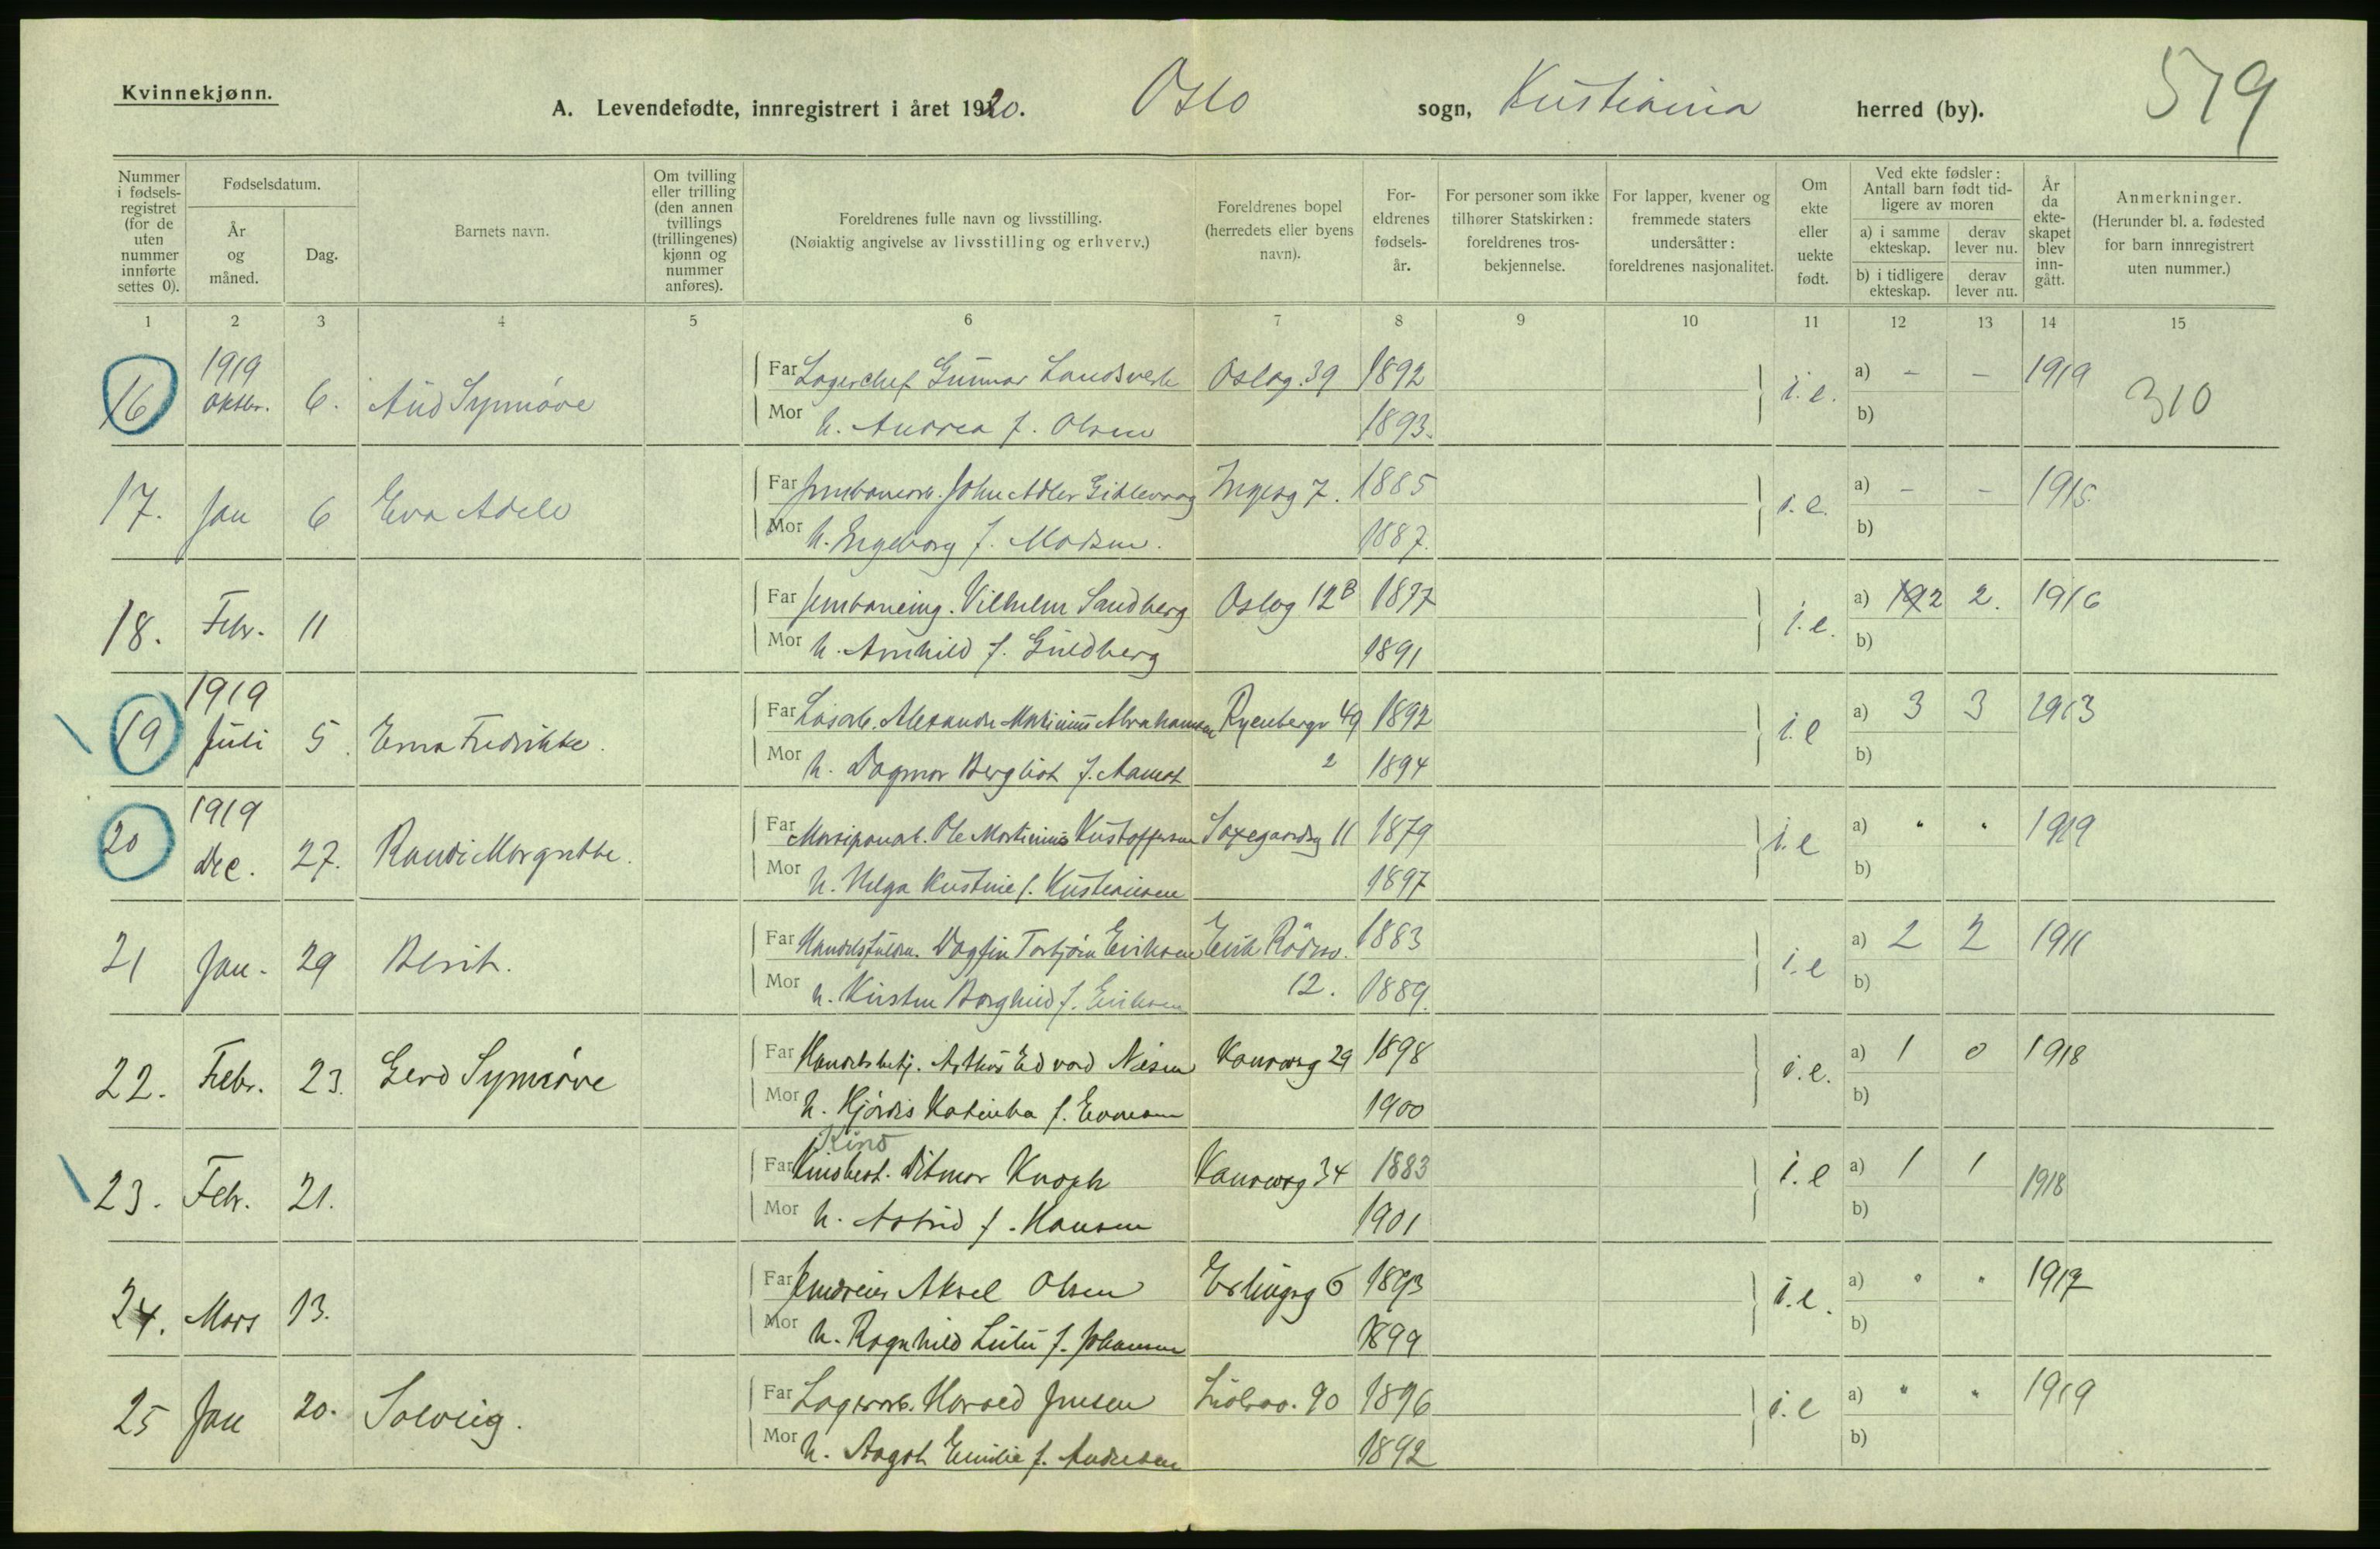 Kvinnekjønn.
A. Levendefødte, innregistrert i året 1920. Oslo sogn, Kristiania herred (by). 519
Nummer i fødsels-registret (for de uten nummer innførte settes 0).
Fødselsdatum.
År og måned.
Dag.
Barnets navn.
Om tvilling eller trilling (den annen tvillings (trillingenes) kjønn og nummer anføres).
Foreldrenes fulle navn og livsstilling.
(Nøiaktig angivelse av livsstilling og erhverv.)
Foreldrenes bopel (herredets eller byens navn).
For-eldrenes fødsels-år.
For personer som ikke tilhører Statskirken: foreldrenes tros-bekjennelse.
For lapper, kvener og fremmede staters undersåtter: foreldrenes nasjonalitet.
Om ekte eller uekte født.
Ved ekte fødsler: Antall barn født tid-ligere av moren
a) i samme ekteskap.
derav lever nu.
b) i tidligere ekteskap.
derav lever nu.
År da ekte-skapet blev inn-gått.
Anmerkninger.
(Herunder bl. a. fødested for barn innregistrert uten nummer.)
1 2 3 4 5 6 7 8 9 10 11 12 13 14 15
16 1919 Oktbr. 6. Aud Synnøve Far Lagerchef Gunnar Landsverk Oslog. 39 1892 i.e. a) - - 1919 310
Mor h. Andrea f. Olsen 1893. b)
17. Jan 6 Eva Adele Far Jernbanearb. John Adler Gihlevaag Ingesg 7. 1885 i.e. a) - - 1915.
Mor h. Ingeborg f. Madsen. 1887. b)
18. Febr. 11 Far Jernbaneing. Vilhelm Sandberg Oslog 12B 1877 i.e. a) 2 2. 1916
Mor h. Arnhild f. Guldberg 1891 b)
19 1919 Juli 5. Erna Fredrikke. Far Løsarb. Alexander Martinius Abrahamsen Ryenbergv 49 1892 i.e a) 3 3 1913
Mor h. Dagmar Bergliot f. Aamot 2 1894 b)
20 1919 Dec. 27. Randi Margrethe. Far Ole Martinius Kristoffersen Saxegaardsg 11 1879 i.e a) " " 1919
Mor h. Helga Kristine f. Kristiansen 1897 b)
21 Jan. 29 Berit. Far Handelsfuldm. Dagfin Torbjørn Eriksen Erik Rødsv. 1883 i.e a) 2 2 1911
Mor h. Kirsten Borghild f. Eriksen 12. 1889. b)
22. Febr. 23. Gerd Synnøve Far Handelsbetj. Arthur Edvard Næsen Kanslerg 29 1898 i.e. a) 1 0 1918
Mor h. Hjørdis Katinka f. Evensen 1900 b)
Kino
23. Febr. 21. Far Kinobest. Ditmar Knoph Kanslerg 34 1883 i.e a) 1 1 1918
Mor h. Astrid f. Hansen 1901 b)
24. Mars 13. Far Jerndreier Aksel Olsen Erlingsg 6 1893 i.e. a) " " 1917
Mor h. Ragnhild Lulu f. Johansen 1899 b)
25 Jan 20. Solveig. Far Lagerarb. Harald Jensen 90 1896 i.e a) " " 1919
Mor h. Aagot Emilie f. Andersen 1892 b)